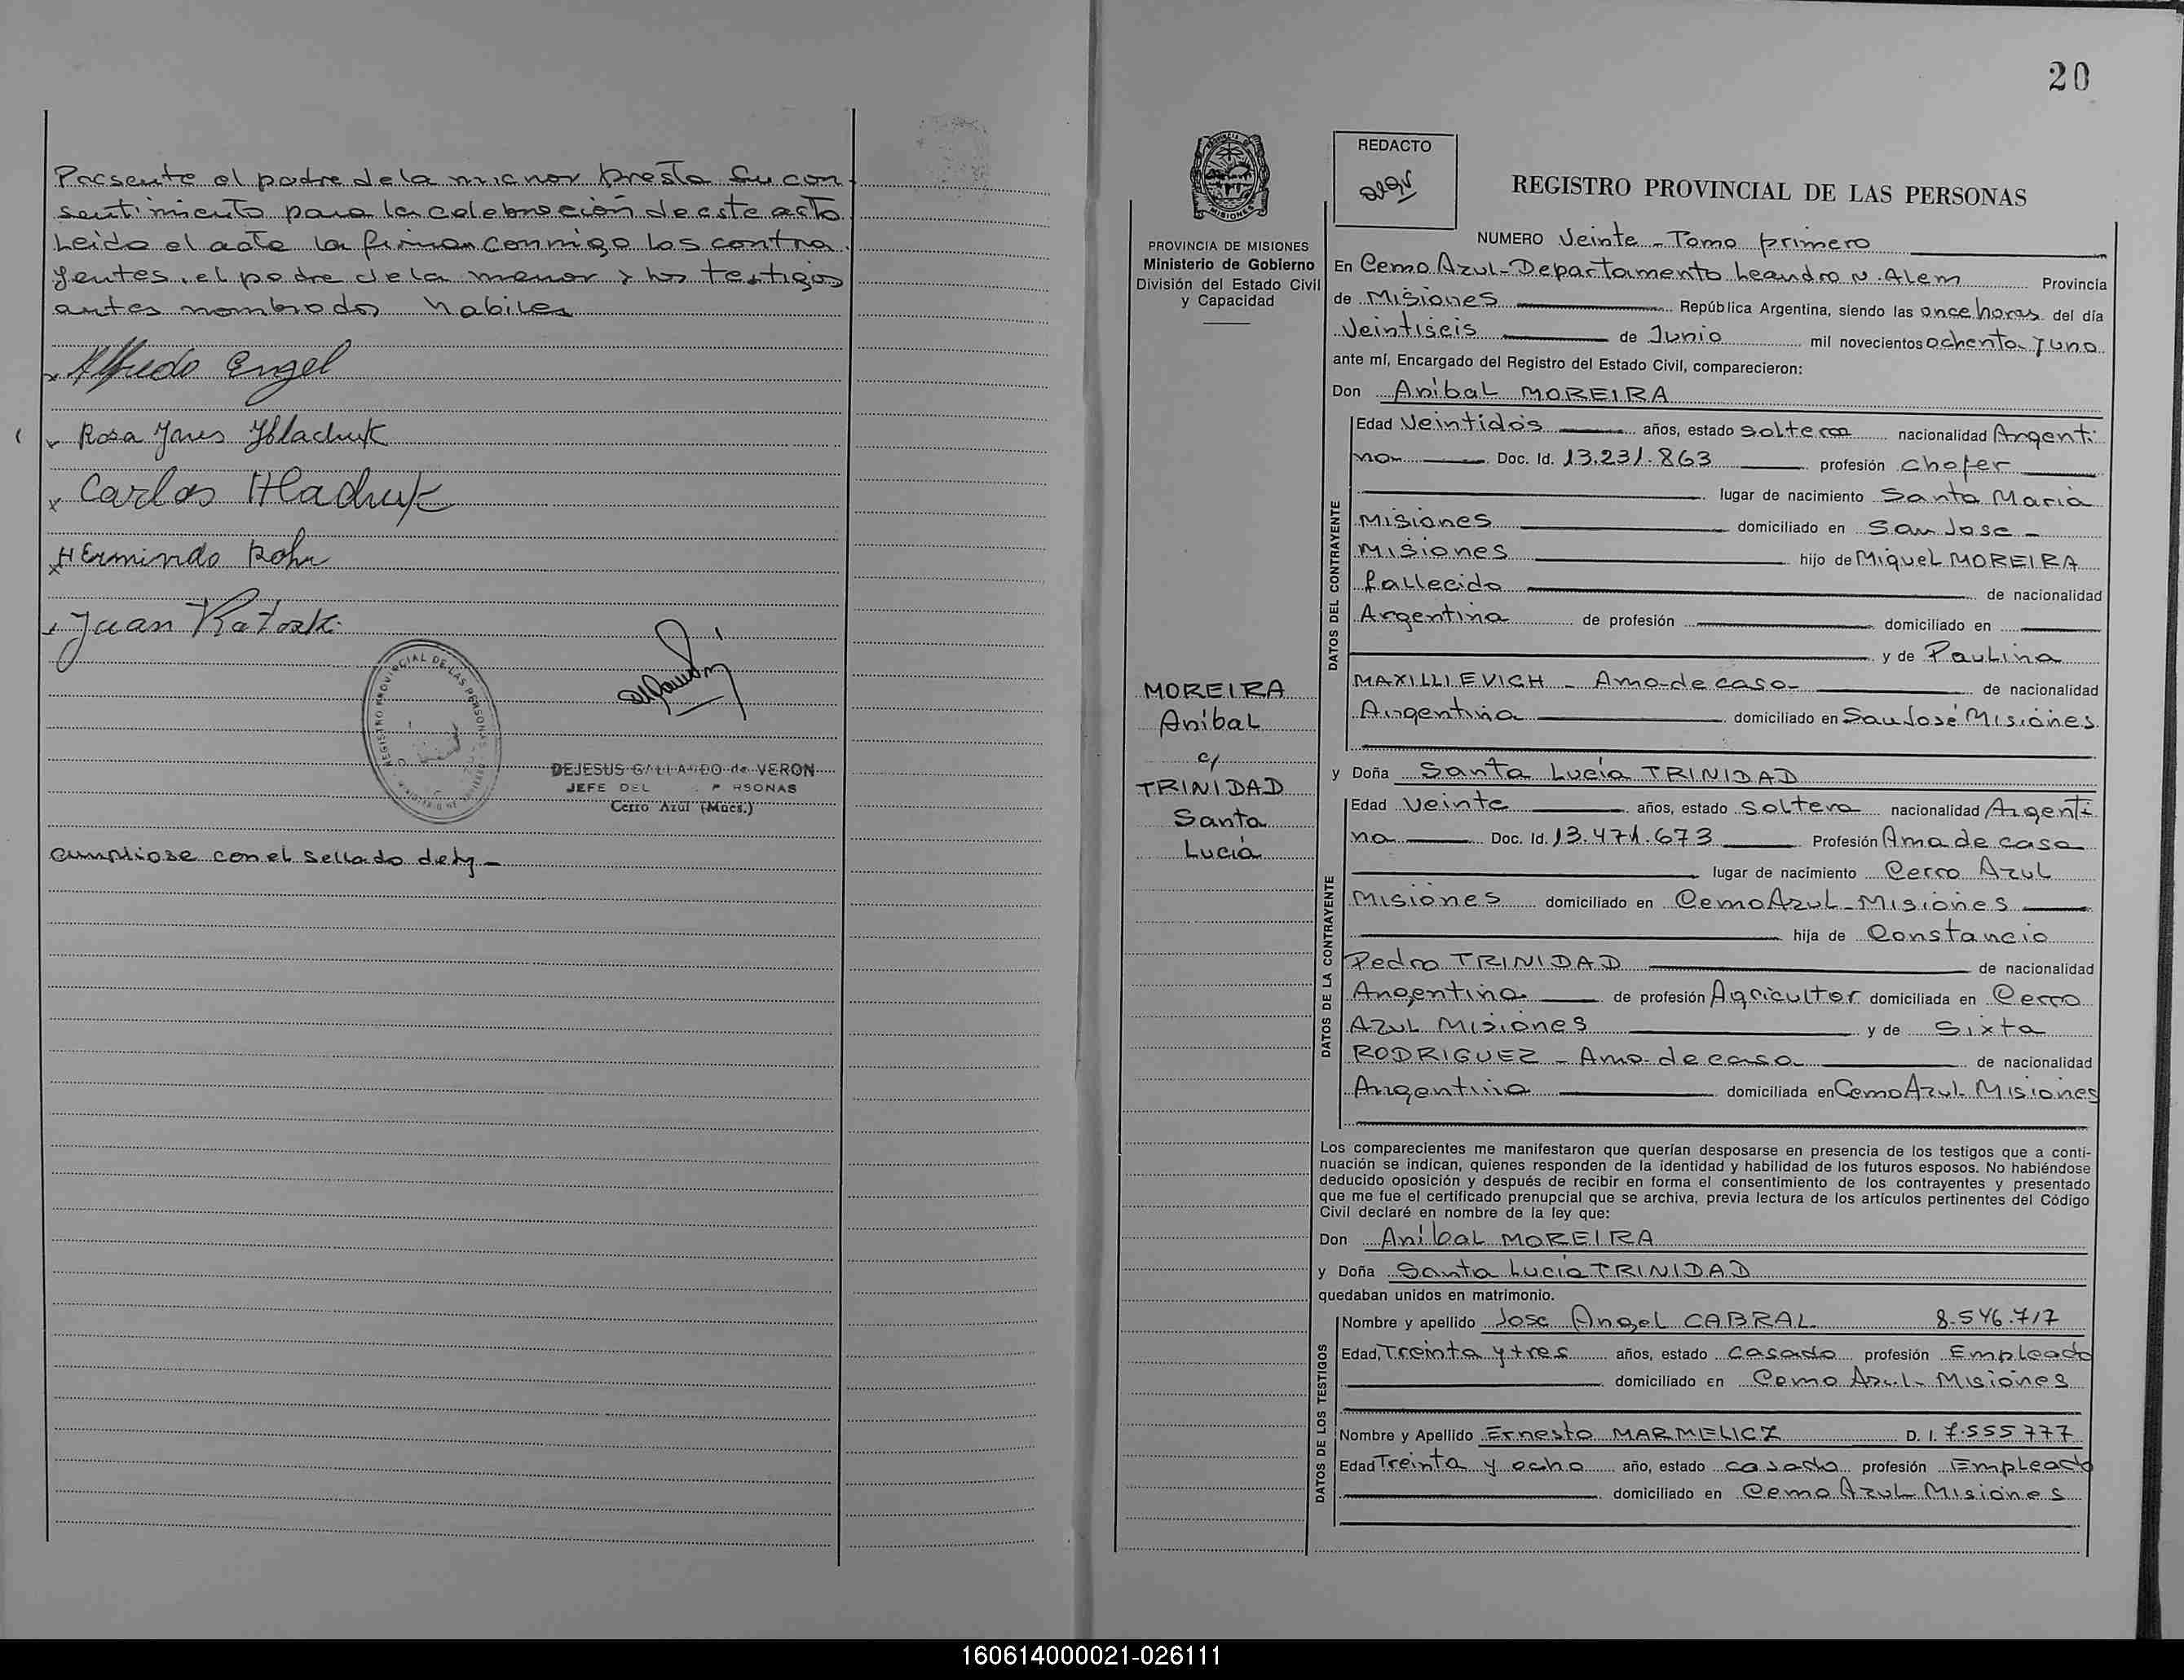 Presente el padre de la menor presta su con
sentimiento para la celebracion de este acto
Leida el acta la firman conmigo los contra
yentes, el padre de la menor y los testigos
antes nombrados habiles
Alfredo Engel
Rosa Ynes Hlachuk
Carlos Hlachuk
HErmindo Rohr
Juan
REGISTRO PROVINCIAL DE LAS PERSONAS
DEJESUS GALLARDO de VERON
JEFE DEL
Cerro Azul (Mnes.)
cumpliose con el sellado de ley -
20
PROVINCIA DE MISIONES
Ministerio de Gobierno
División del Estado Civil
y Capacidad
MOREIRA
Anibal
c/
TRINIDAD
Santa
Lucia
REDACTO
REGISTRO PROVINCIAL DE LAS PERSONAS
NUMERO Veinte - Tomo primero
En Cerro Azul - Departamento Leandro N. Alem Provincia
de Misiones República Argentina, siendo las once horas del día
Veintiseis de Junio mil novecientos ochenta y uno
ante mí, Encargado del Registro del Estado Civil, comparecieron:
Don Anibal MOREIRA
DATOS DEL CONTRAYENTE
Edad Veintidós años, estado soltero nacionalidad Argenti
na Doc. Id. 13.231.863 profesión chofer
lugar de nacimiento Santa Maria
Misiones domiciliado en San Jose -
Misiones hijo de Miguel MOREIRA
fallecido de nacionalidad
Argentina de profesión domiciliado en
y de Paulina
MAXILLIEVICH - Ama de casa - de nacionalidad
Argentina domiciliado en San José Misiones
y Doña Santa Lucia TRINIDAD
DATOS DE LA CONTRAYENTE
Edad Veinte años, estado soltera nacionalidad Argenti
na Doc. Id. 13.471.673 Profesión Ama de casa
lugar de nacimiento Cerro Azul
Misiones domiciliado en Cerro Azul - Misiones
hija de Constancio
Pedro TRINIDAD de nacionalidad
Argentina de profesión Agricultor domiciliada en Cerro
Azul Misiones y de Sixta
RODRIGUEZ - Ama de casa de nacionalidad
Argentina domiciliada en Cerro Azul - Misiones
Los comparecientes me manifestaron que querían desposarse en presencia de los testigos que a conti-
nuación se indican, quienes responden de la identidad y habilidad de los futuros esposos. No habiéndose
deducido oposición y después de recibir en forma el consentimiento de los contrayentes y presentado
que me fue el certificado prenupcial que se archiva, previa lectura de los artículos pertinentes del Código
Civil declaré en nombre de la ley que:
Don Anibal MOREIRA
y Doña Santa Lucia TRINIDAD
quedaban unidos en matrimonio.
DATOS DE LOS TESTIGOS
Nombre y apellido Jose Angel CABRAL 8.546.717
Edad, Treinta y tres años, estado casado profesión Empleado
domiciliado en Cerro Azul - Misiones
Nombre y Apellido Ernesto MARMELICZ D. I. 7.555777
Edad Treinta y ocho año, estado casado profesión Empleado
domiciliado en Cerro Azul Misiones
160614000021-026111